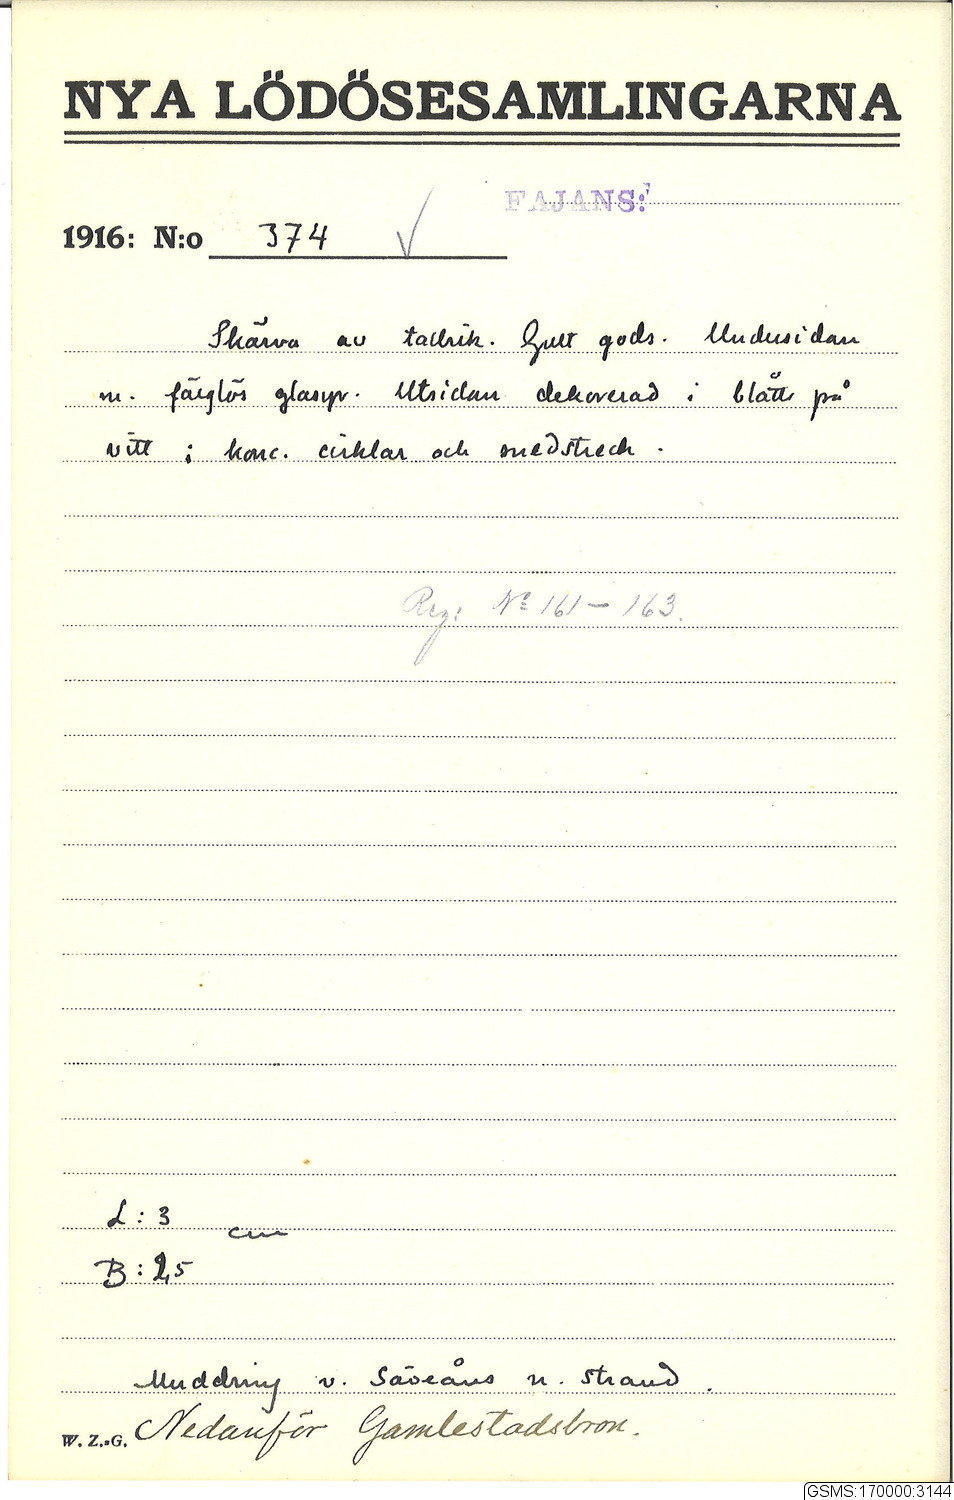 NYA LÖDÖSESAMLINGARNA
FAJANS:
1916: N:o 374
Skärva av tallrik. Gult gods. Undersidan
m. färglös glasyr. Utsidan dekorerad i blått på
vitt i konc. cirklar och snedstreck.
Reg: No 161 – 163.
L: 3
cm
B: 2,5
Muddring v. Säveåns n. strand.
Nedanför Gamlestadsbron.
W. Z.-G.
GSMS:170000:3144